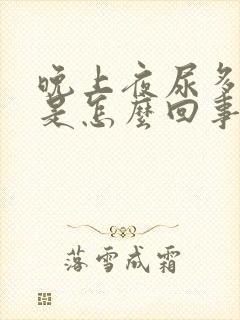 晚上夜尿多
是怎麼回事
落雪成霜